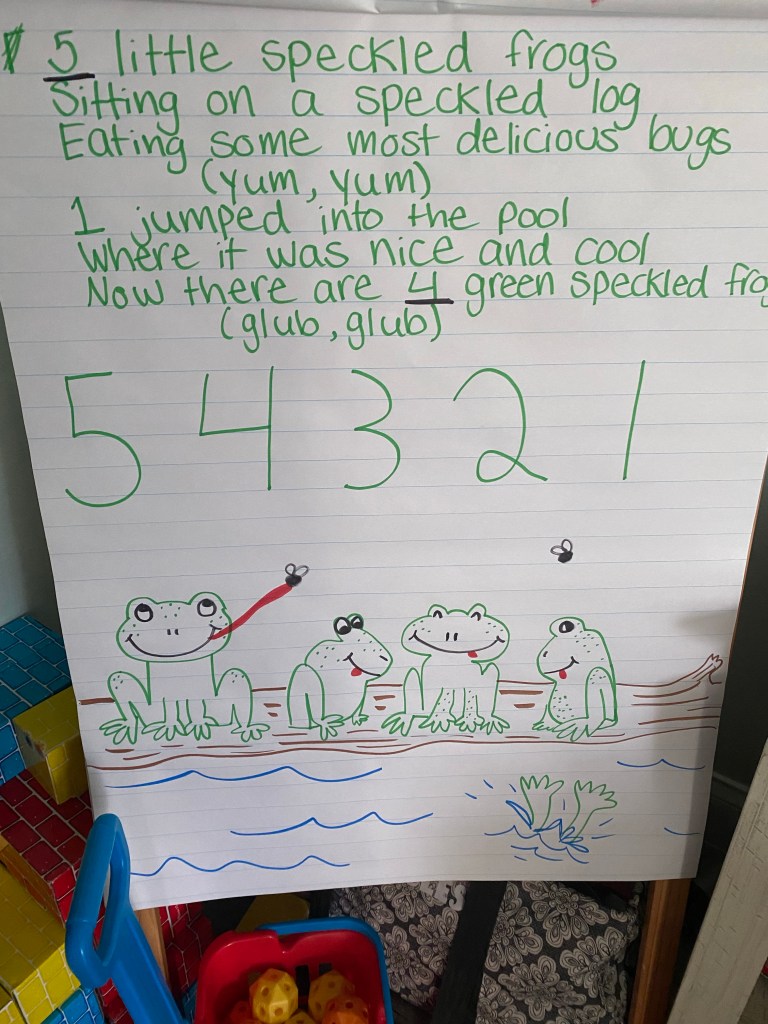 5 little speckled frogs
Sitting on a speckled log
Eating some most delicious bugs
(yum, yum)
1 jumped into the pool
Where it was nice and cool
Now there are 4 green speckled frog
(glub, glub)
5 4 3 2 1